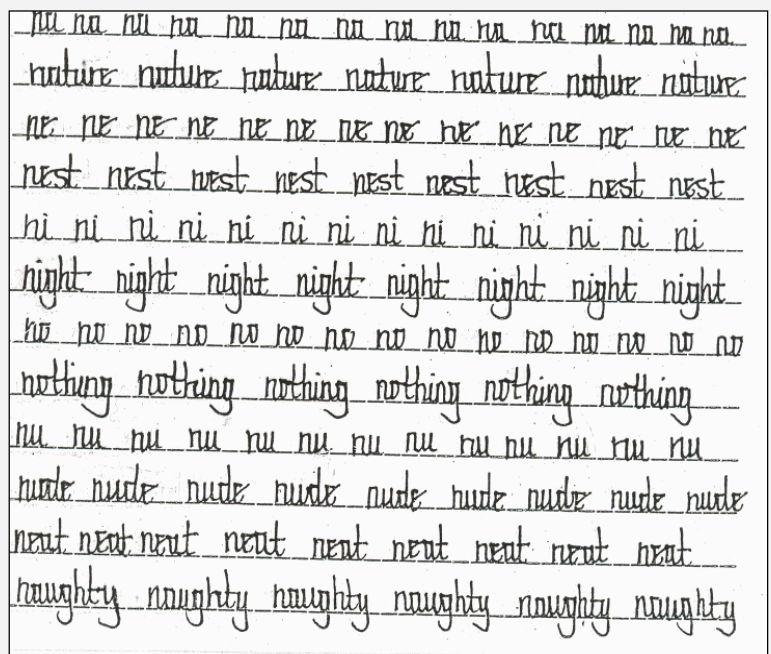 na na na na na na na na na na na na na na na
nature nature nature nature nature nature nature
ne ne ne ne ne ne ne ne ne ne ne ne ne ne
nest nest nest nest nest nest nest nest nest
ni ni ni ni ni ni ni ni ni ni ni ni ni ni
night night night night night night night night
no no no no no no no no no no no no no no
nothing nothing nothing nothing nothing nothing
nu nu nu nu nu nu nu nu nu nu nu nu nu
nude nude nude nude nude nude nude nude nude
neat neat neat neat neat neat neat neat neat
naughty naughty naughty naughty naughty naughty